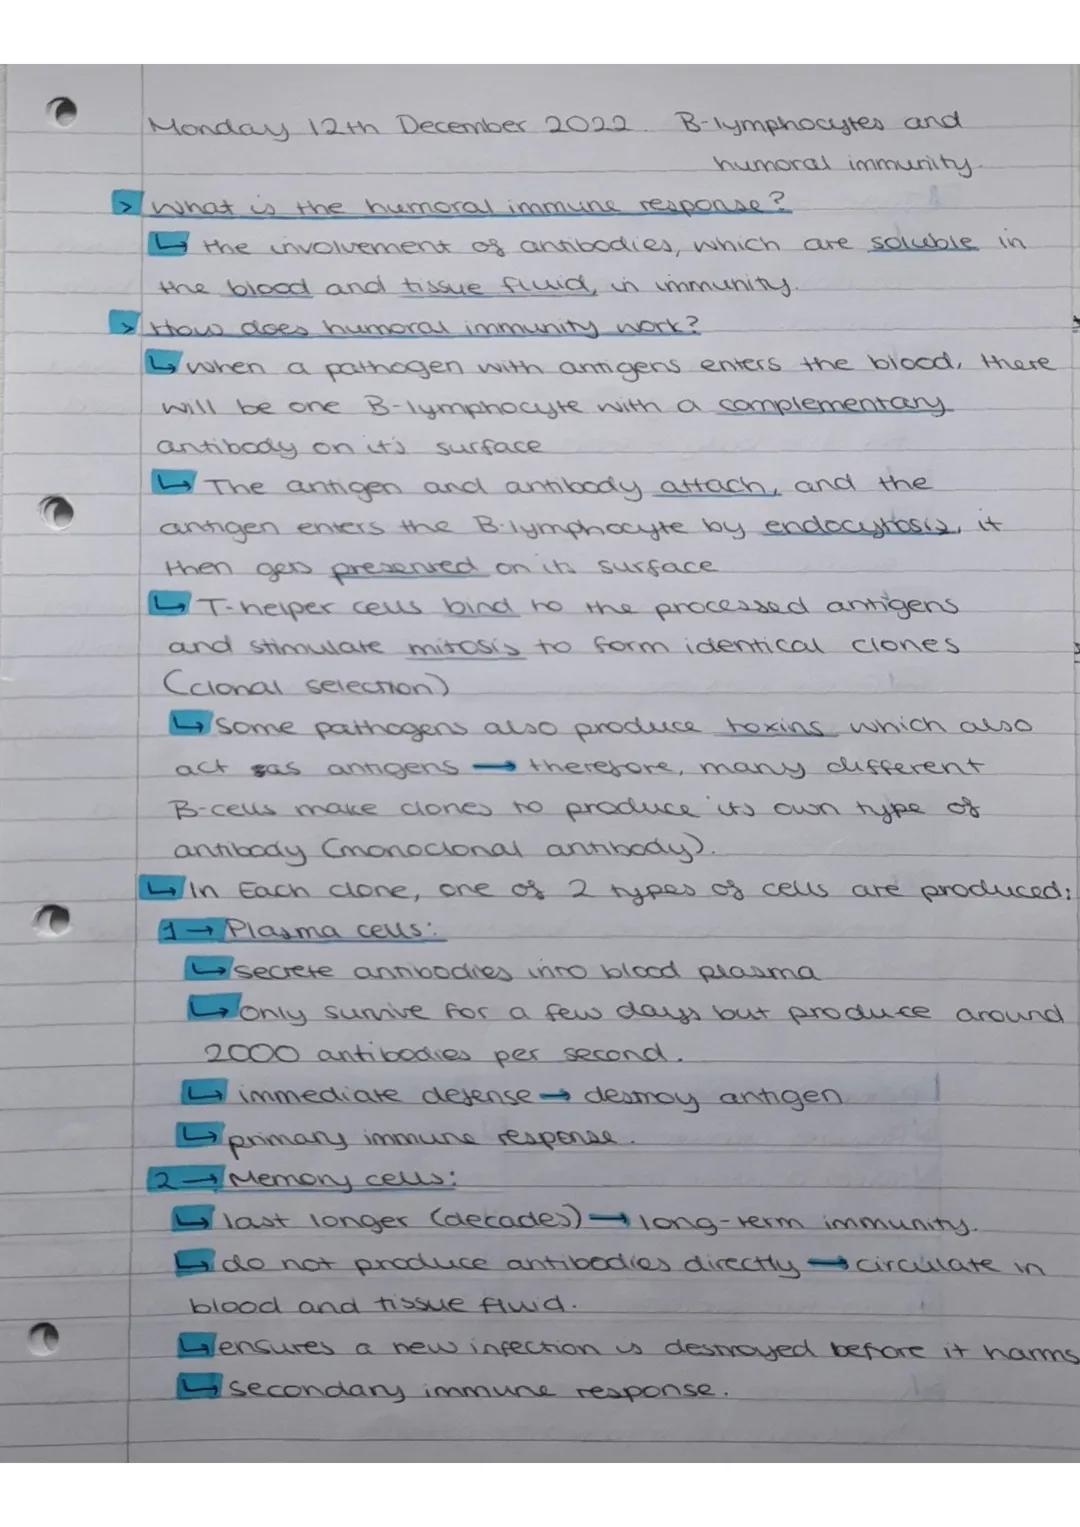 Monday 12th December 2022. B-lymphocytes and
humoral immunity.
> What is the humoral immune response?
↳ the involvement of antibodies, which are soluble in
the blood and tissue fluid, in immunity.
> How does humoral immunity work?
↳ when a pathogen with antigens enters the blood, there
will be one B-lymphocyte with a complementary
antibody on it's surface
↳ The antigen and antibody attach, and the
antigen enters the B-lymphocyte by endocytosis, it
then gets presented on its surface
↳ T-helper cells bind to the processed antigens
and stimulate mitosis to form identical clones
(clonal selection)
↳ Some pathogens also produce toxins which also
act as antigens → therefore, many different
B-cells make clones to produce its own type of
antibody (monoclonal antibody).
↳ In Each clone, one of 2 types of cells are produced:
1 → Plasma cells:
↳ secrete antibodies into blood plasma
↳ Only survive for a few days but produce around
2000 antibodies per second.
↳ immediate defense → destroy antigen
↳ primary immune response.
2 → Memory cells:
↳ last longer (decades) → long-term immunity.
↳ do not produce antibodies directly → circulate in
blood and tissue fluid.
↳ ensures a new infection is destroyed before it harms
↳ secondary immune response.